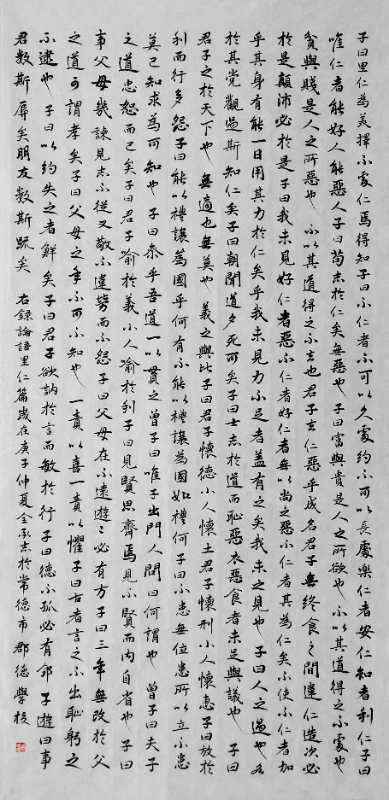 子曰里仁為美擇不處仁焉得知子曰不仁者不可以久處約不可以長處樂仁者安仁知者利仁子曰
唯仁者能好人能惡人子曰苟志於仁矣無惡也子曰富與貴是人之所欲也不以其道得之不處也
貧與賤是人之所惡也不以其道得之不去也君子去仁惡乎成名君子無終食之間違仁造次必
於是顛沛必於是子曰我未見好仁者惡不仁者好仁者無以尚之惡不仁者其為仁矣不使不仁者加
乎其身有能一日用其力於仁矣乎我未見力不足者蓋有之矣我未之見也子曰人之過也各
於其黨觀過斯知仁矣子曰朝聞道夕死可矣子曰士志於道而恥惡衣惡食者未足與議也子曰
君子之於天下也無適也無莫也義之與比子曰君子懷德小人懷土君子懷刑小人懷惠子曰放於
利而行多怨子曰能以禮讓為國乎何有不能以禮讓為國如禮何子曰不患無位患所以立不患
莫己知求為可知也子曰參乎吾道一以貫之曾子曰唯子出門人問曰何謂也曾子曰夫子
之道忠恕而已矣子曰君子喻於義小人喻於利子曰見賢思齊焉見不賢而內自省也子曰
事父母幾諫見志不從又敬不違勞而不怨子曰父母在不遠遊々必有方子曰三年無改於父
之道可謂孝矣子曰父母之年不可不知也一責以喜一責以懼子曰古者言之不出恥躬之
不逮也子曰以約失之者鮮矣子曰君子欲訥於言而敏於行子曰德不孤必有鄰子遊曰事
君數斯辱矣朋友數斯疏矣右錄論語里仁篇歲在庚子仲夏全承志於常德市郡德學校